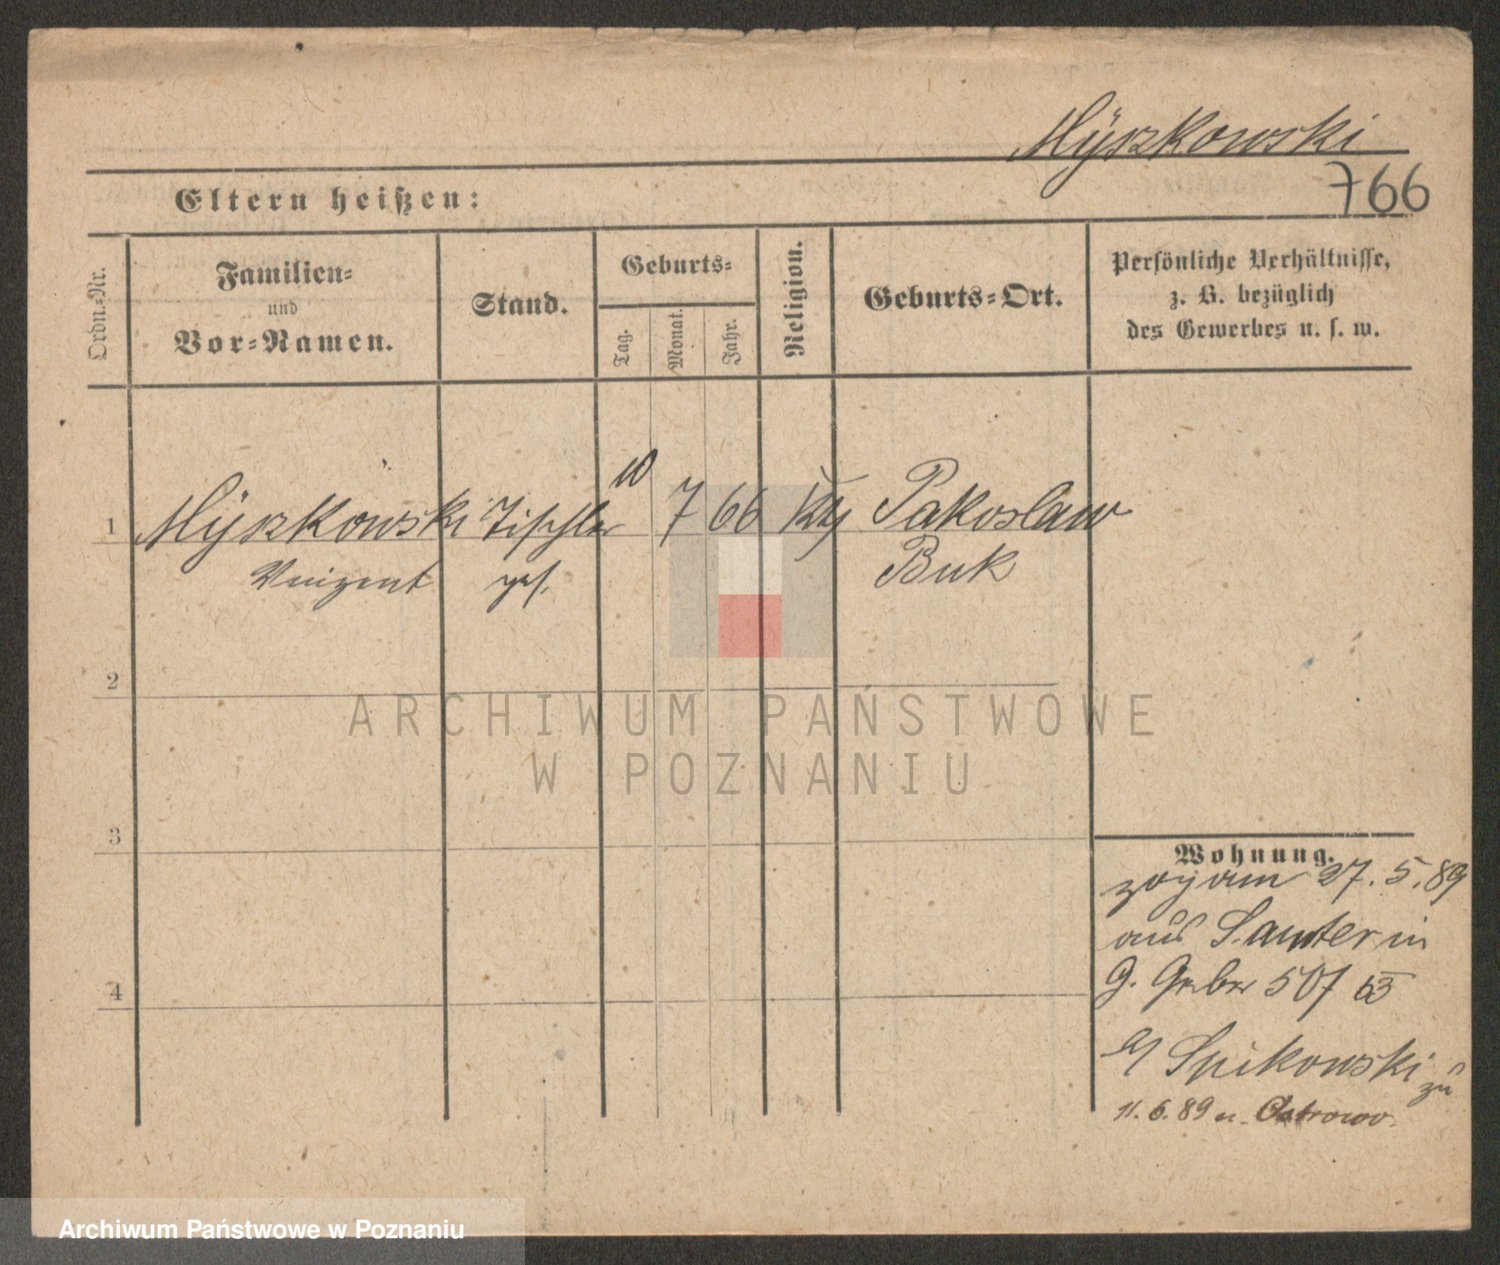 Myszkowski
766
Eltern heißen:
Ordn.-Nr.
Familien-
und
Vor-Namen.
Stand.
Geburts-
Tag.
Monat.
Jahr.
Religion.
Geburts-Ort.
Persönliche Verhältnisse,
z. B. bezüglich
des Gewerbes u. s. w.
1 Myszkowski Tischler 10 7 66 Pakoslaw
Vinzent ges. Buk
2
3
4
Wohnung.
zog am 27. 5. 89
aus Samter in
G. Gerber 507
Spikowski zu
11. 6. 89 n. Ostrowo.
ARCHIWUM PAŃSTWOWE
W POZNANIU
Archiwum Państwowe w Poznaniu